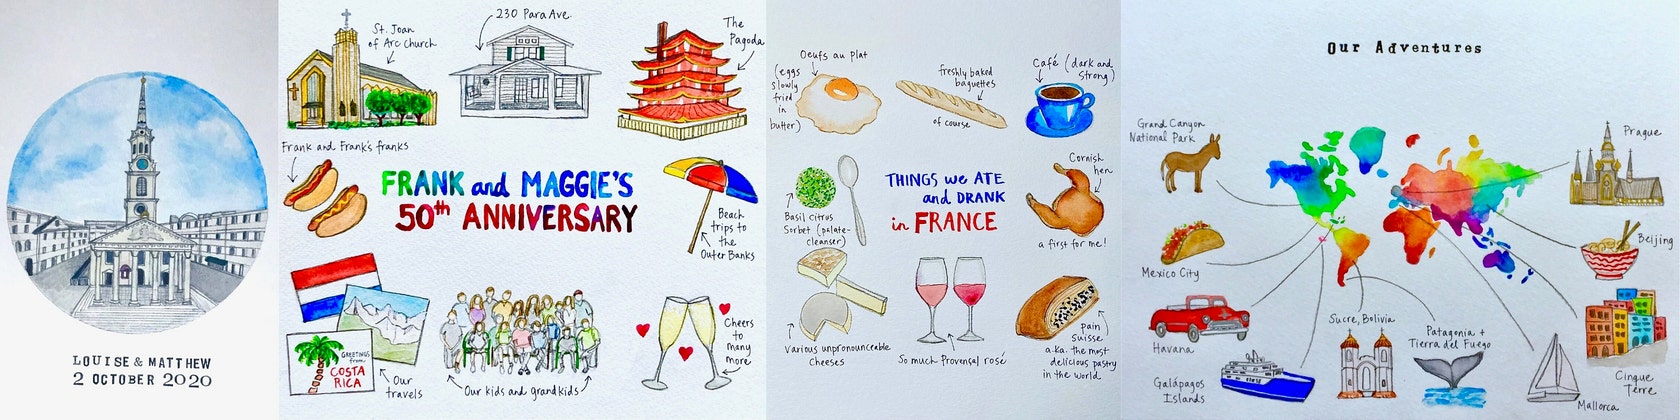 LOUISE & MATTHEW
2 OCTOBER 2020
St. Joan
of Arc Church
230 Para Ave.
The
Pagoda
Frank and Frank's franks
FRANK and MAGGIE'S
50th ANNIVERSARY
Beach
trips to
the
Outer Banks
GREETINGS
from
COSTA
RICA
Our
travels
Our kids and grandkids
Cheers
to
many
more
Oeufs au plat
(eggs
slowly
fried
in
butter)
freshly baked
baguettes
of course
Café (dark and
strong)
Basil citrus
Sorbet (palate-
cleanser)
THINGS we ATE
and DRANK
in FRANCE
Cornish
hen
a first for me!
Various unpronounceable
Cheeses
So much Provençal rosé
pain
suisse
a.k.a. the most
delicious pastry
in the world
Our Adventures
Grand Canyon
National Park
Prague
Mexico City
Beijing
Havana
Sucre, Bolivia
Patagonia +
Tierra del Fuego
Galápagos
Islands
Mallorca
Cinque
Terre